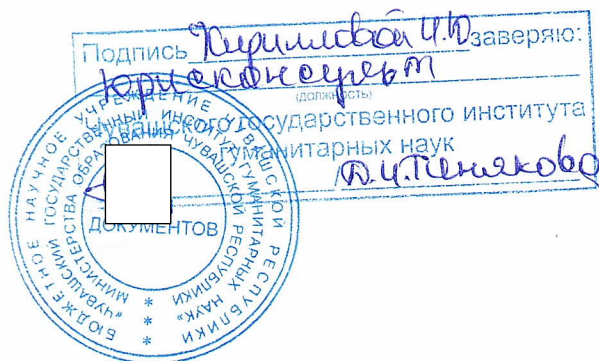 Подпись Кирилловой И.Ю заверяю:
Юрисконсульт
(должность)
Чувашского государственного института
гуманитарных наук
БЮДЖЕТНОЕ НАУЧНОЕ УЧРЕЖДЕНИЕ ЧУВАШСКОЙ РЕСПУБЛИКИ
"ЧУВАШСКИЙ ГОСУДАРСТВЕННЫЙ ИНСТИТУТ ГУМАНИТАРНЫХ НАУК"
МИНИСТЕРСТВА ОБРАЗОВАНИЯ ЧУВАШСКОЙ РЕСПУБЛИКИ
ДОКУМЕНТОВ